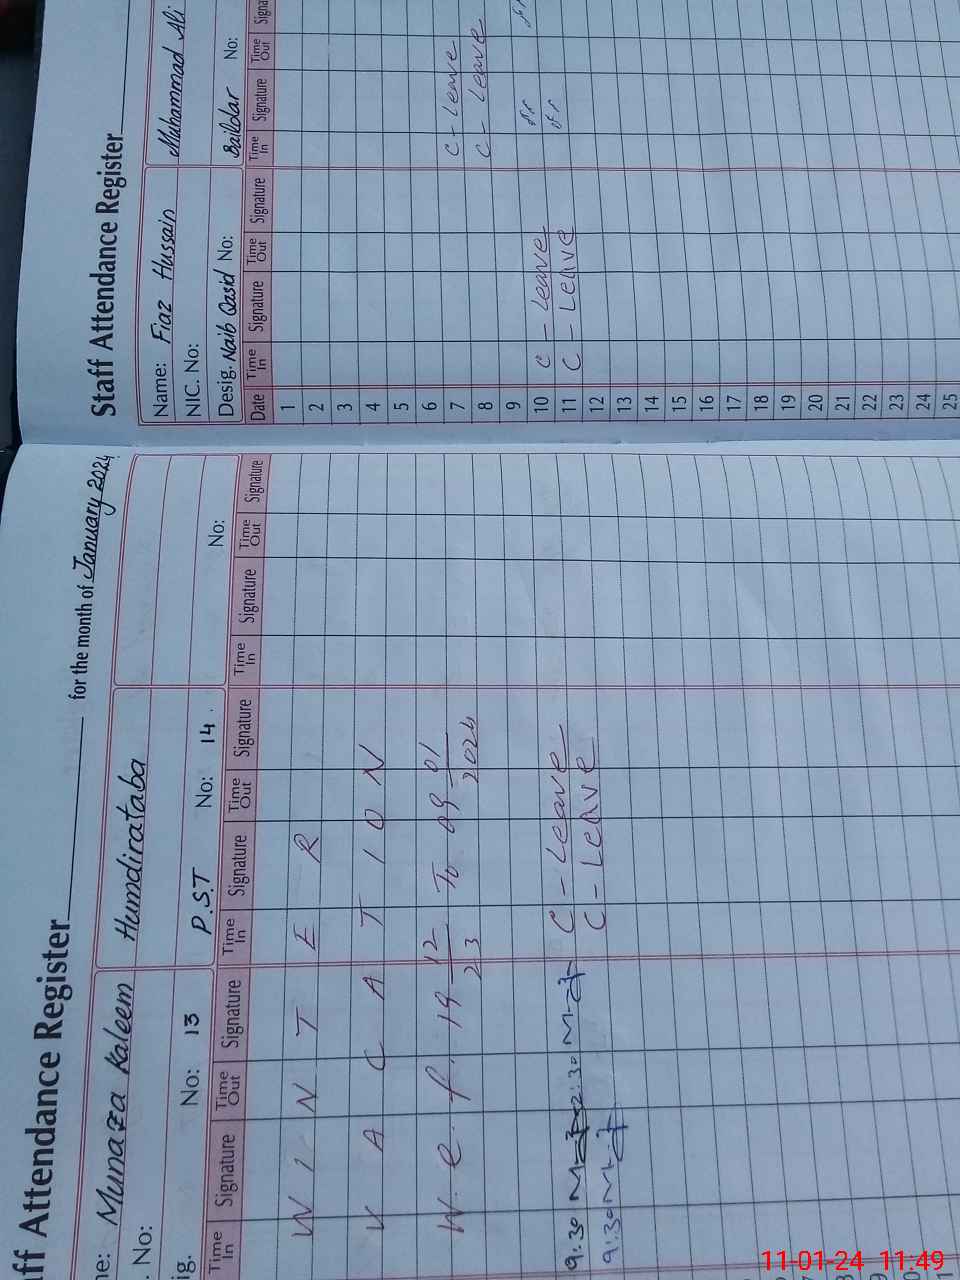 ff Attendance Register for the month of January 2024
ne: Munaza Kaleem Humdirataba
. No:
ig. No: 13 P.S.T No: 14 . No:
Time In Signature Time Out Signature Time In Signature Time Out Signature Time In Signature Time Out Signature
W I N T E R
V A C A T I O N
W. e. f. 19 12 23 To 09 01 2024
9:30 2:30 C - Leave
9:30 C - Leave
Staff Attendance Register
Name: Fiaz Hussain Muhammad Ali
NIC. No:
Desig. Naib Qasid No: Baildar No:
Date Time In Signature Time Out Signature Time In Signature Time Out Signa
1
2
3
4
5
6
7 C - Leave
8 C - Leave
9
10 C - Leave
11 C - Leave
12
13
14
15
16
17
18
19
20
21
22
23
24
25
11-01-24 11:49